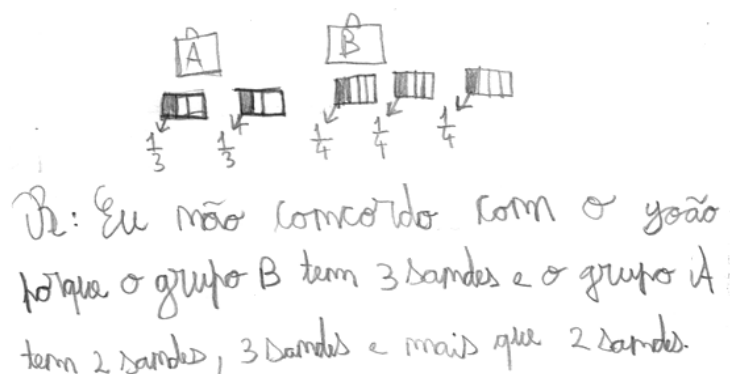 A B
1/3 1/3 1/4 1/4 1/4
R: Eu não concordo com o João
porque o grupo B tem 3 sandes e o grupo A
tem 2 sandes, 3 sandes e mais que 2 sandes.